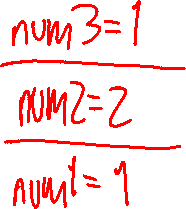 num3=1
num2=2
num1=1